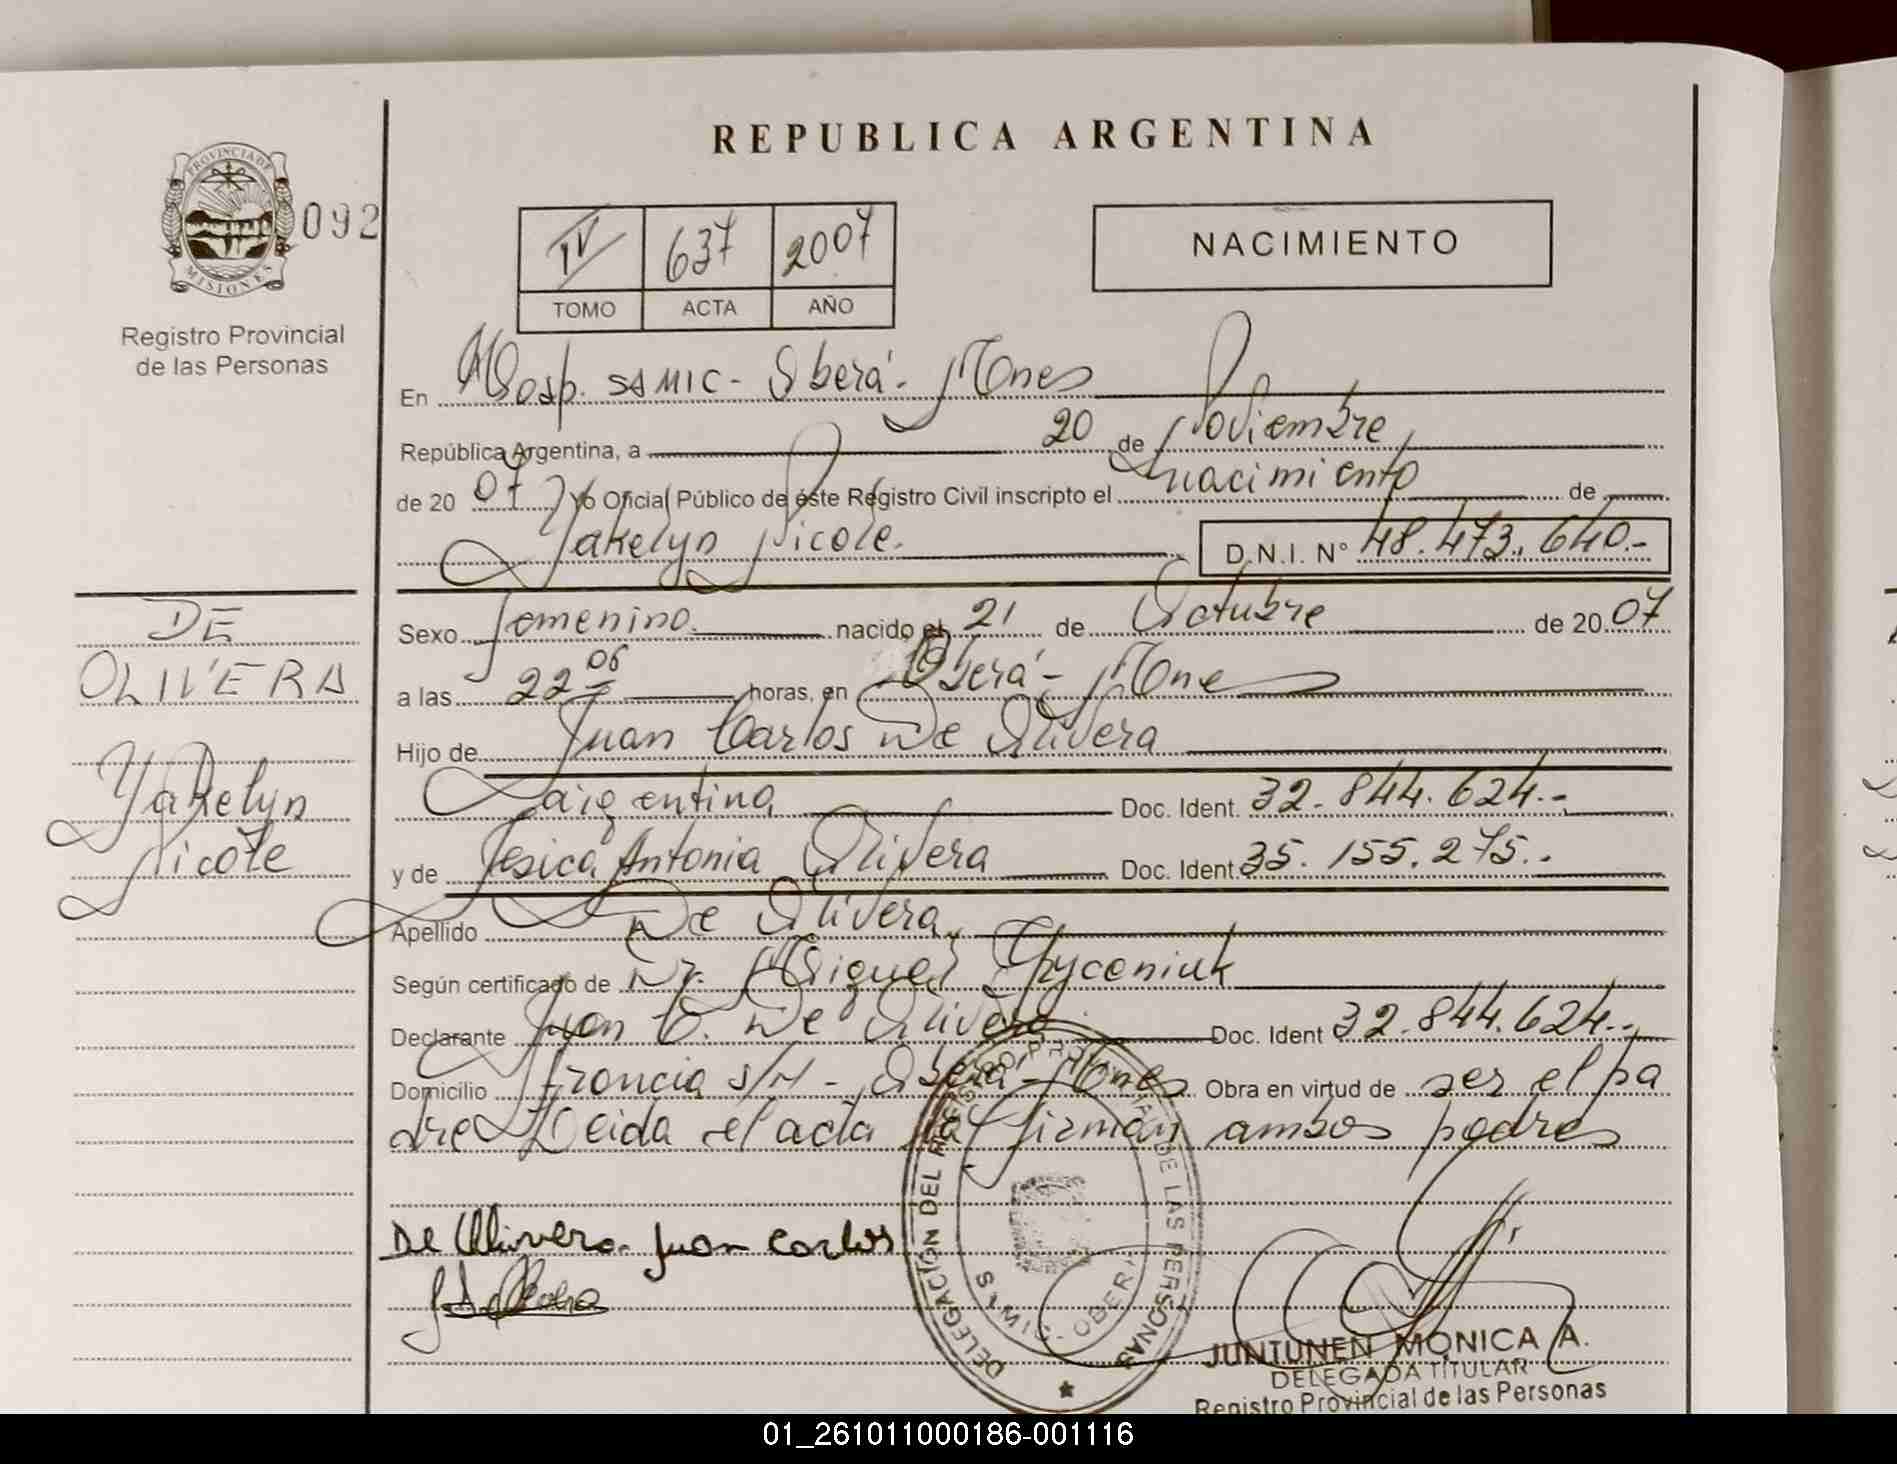 REPUBLICA ARGENTINA
PROVINCIA DE
MISIONES
092
Registro Provincial
de las Personas
IV 637 2007
TOMO ACTA AÑO
NACIMIENTO
En Hosp. SAMIC - Oberá - Mnes
República Argentina, a 20 de Noviembre
de 20 07 Yo Oficial Público de éste Registro Civil inscripto el nacimiento de
Yakelyn Nicole. D.N.I. N° 48.473.640.-
DE
OLIVERA
Yakelyn
Nicole
Sexo femenino. nacido el 21 de Octubre de 20 07
a las 22 06 horas, en Oberá - Mnes
Hijo de Juan Carlos De Olivera
argentina Doc. Ident. 32.844.624.-
y de Jesica Antonia Olivera Doc. Ident 35.155.275.-
Apellido De Olivera
Según certificado de Dr. Miguel
Declarante Juan C. De Olivera Doc. Ident 32.844.624.-
Domicilio Francia s/N - Oberá - Mnes Obra en virtud de ser el pa
dre Leida el acta la firman ambos padres
De Olivera Juan Carlos
DELEGACIÓN DEL REGISTRO PROVINCIAL DE LAS PERSONAS
SAMIC - OBERÁ
JUNTUNEN MONICA A.
DELEGADA TITULAR
Registro Provincial de las Personas
01_261011000186-001116